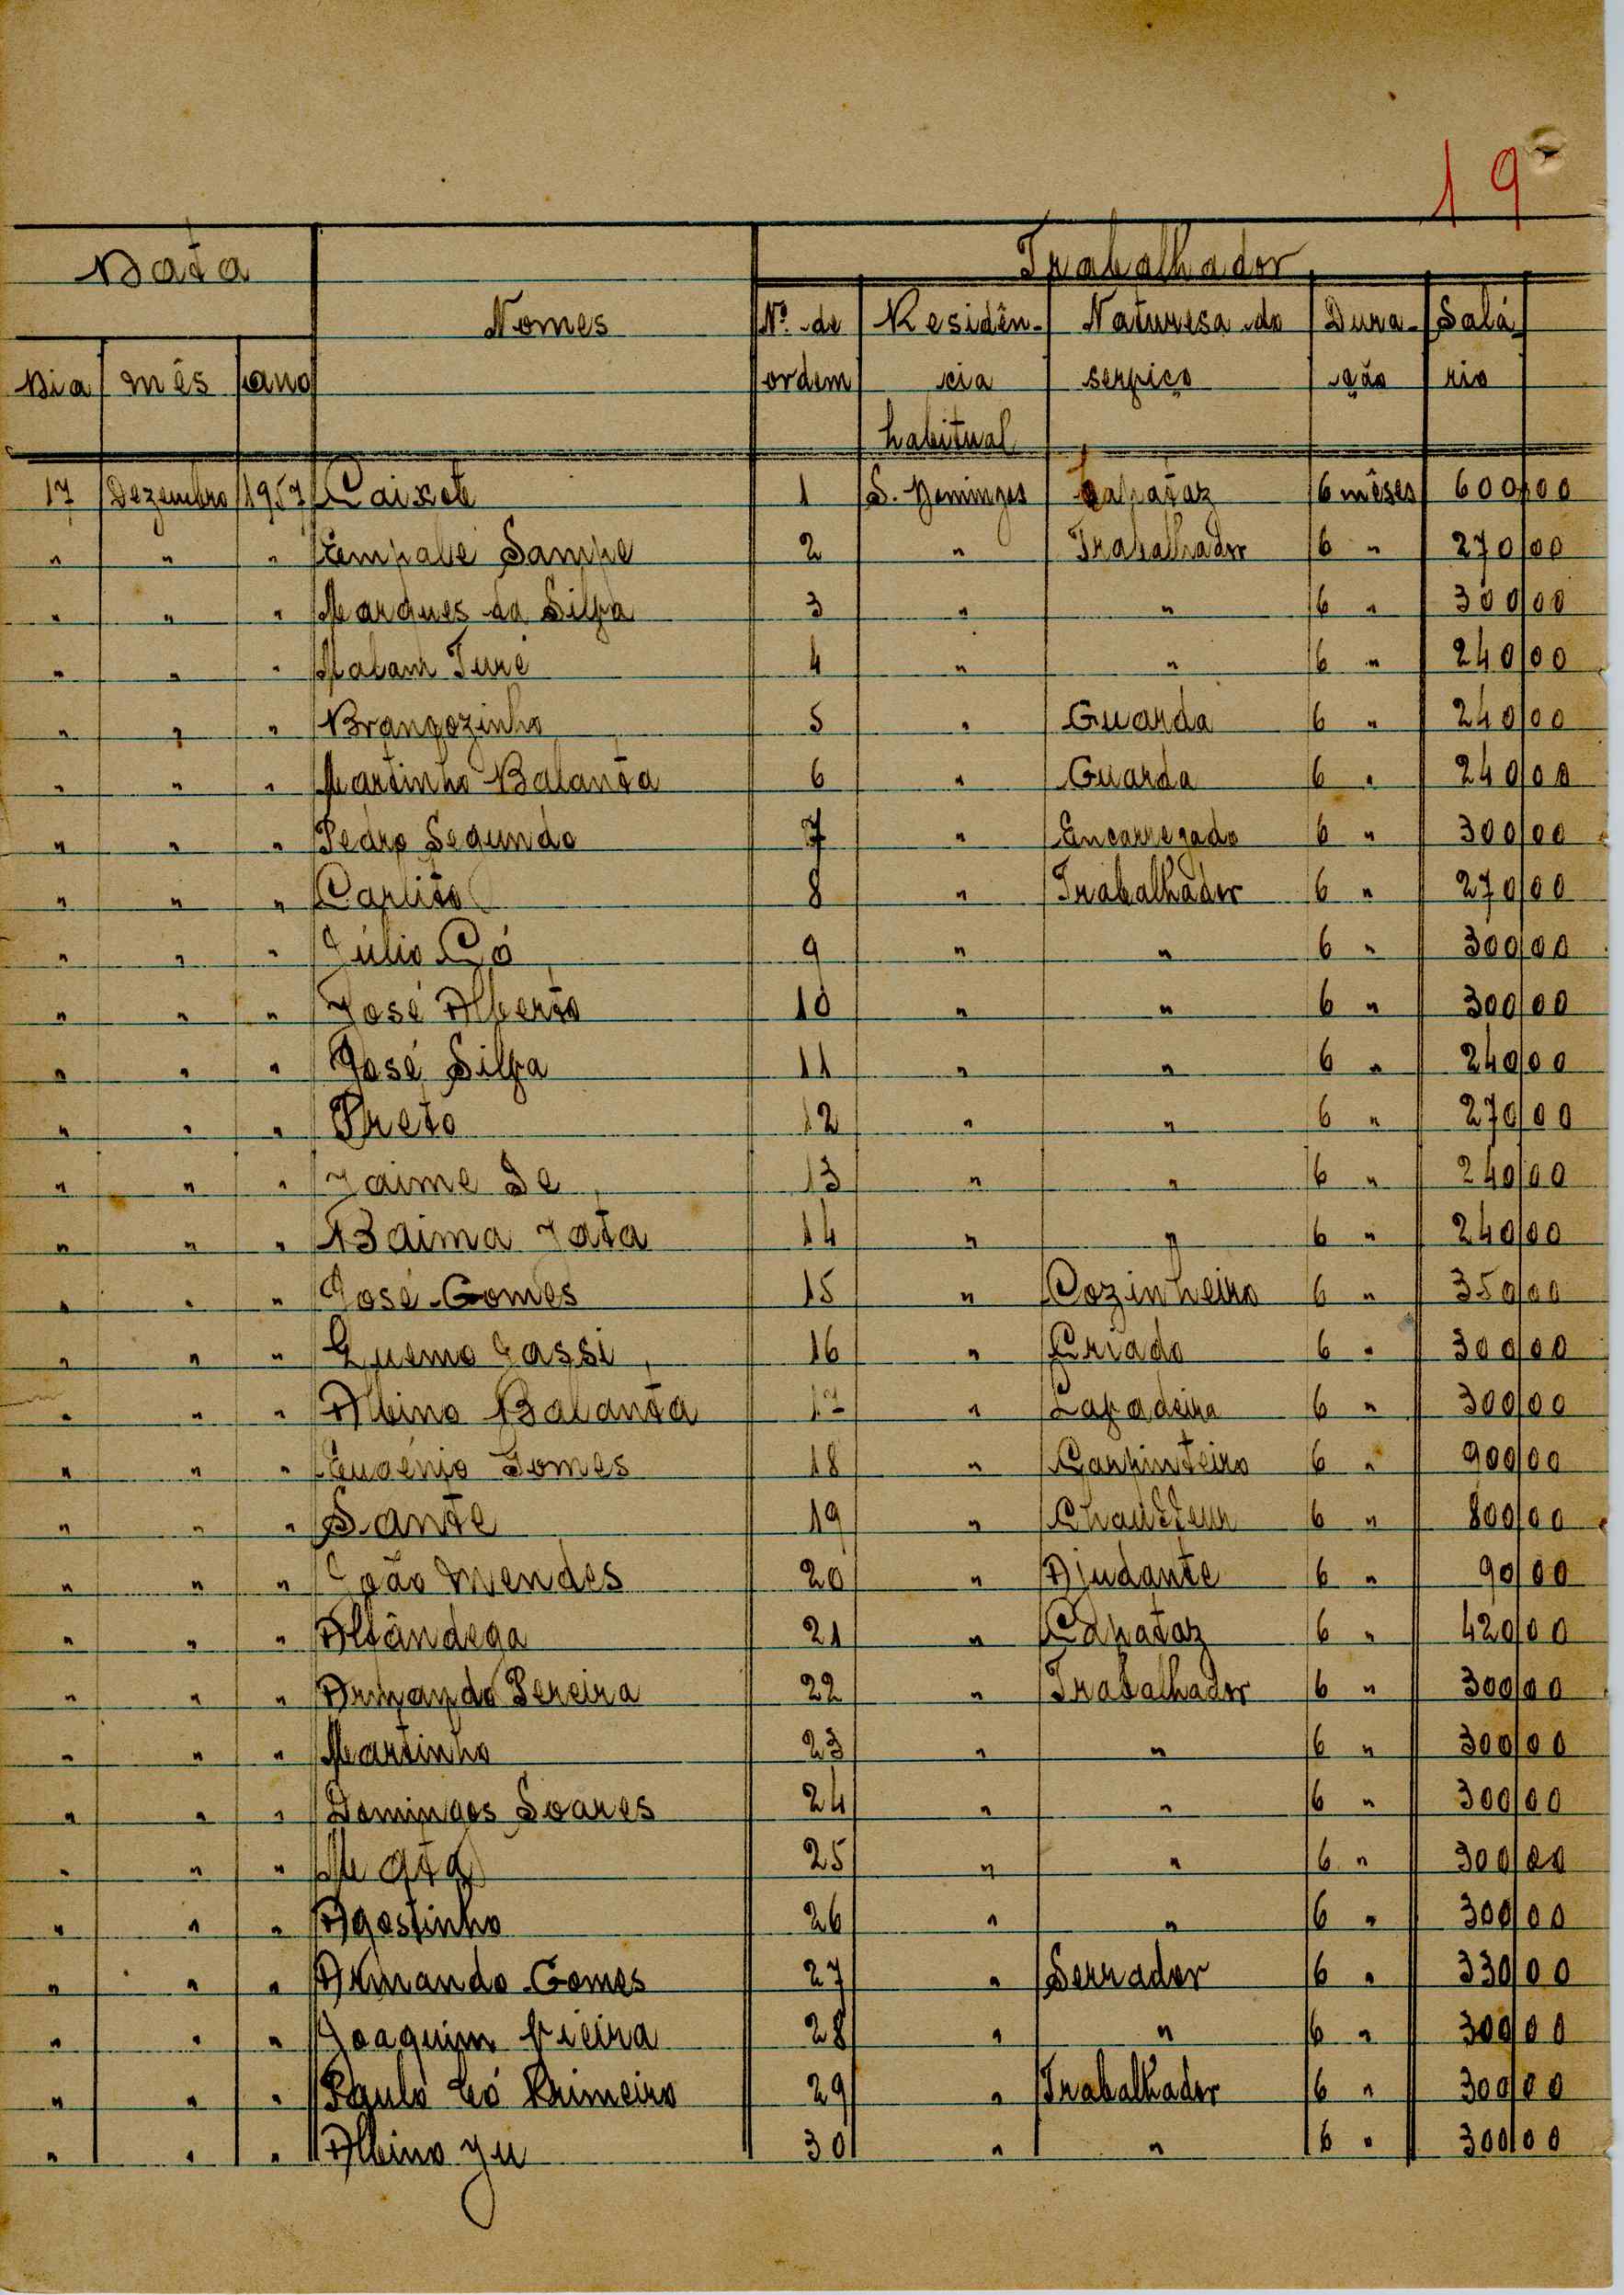 19
Data Trabalhador
Nomes Nº. de Residên- Naturesa do Dura- Salá
Dia mês ano ordem cia serviço ção rio
habitual
17 Dezembro 1957 Caixote 1 S. Domingos Capataz 6 mêses 600,00
" " " Sampe 2 " Trabalhador 6 " 270 00
" " " Marques da Silva 3 " " 6 " 300 00
" " " Malam Turé 4 " " 6 " 240 00
" " " 5 " Guarda 6 " 240 00
" " " Martinho Balanta 6 " Guarda 6 " 240 00
" " " Pedro Segundo 7 " Encarregado 6 " 300 00
" " " Carlito 8 " Trabalhador 6 " 270 00
" " " Júlio Có 9 " " 6 " 300 00
" " " José Alberto 10 " " 6 " 300 00
" " " José Silva 11 " " 6 " 240 00
" " " Preto 12 " " 6 " 270 00
" " " Jaime Se 13 " " 6 " 240 00
" " " Baima Jata 14 " " 6 " 240 00
" " " José Gomes 15 " Cozinheiro 6 " 350 00
" " " Quemo Cassi 16 " Criado 6 " 300 00
" " " Albino Balanta 17 " Lavadeira 6 " 300 00
" " " Eugénio Gomes 18 " Carpinteiro 6 " 900 00
" " " Sante 19 " Chauffeur 6 " 800 00
" " " João Mendes 20 " Ajudante 6 " 90 00
" " " Alfândega 21 " Capataz 6 " 420 00
" " " Armando Pereira 22 " Trabalhador 6 " 300 00
" " " Martinho 23 " " 6 " 300 00
" " " Domingos Soares 24 " " 6 " 300 00
" " " Mata 25 " " 6 " 300 00
" " " Agostinho 26 " " 6 " 300 00
" " " Armando Gomes 27 " Serrador 6 " 330 00
" " " Joaquim Vieira 28 " " 6 " 300 00
" " " Paulo Có Primeiro 29 " Trabalhador 6 " 300 00
" " " Albino Ju 30 " " 6 " 300 00